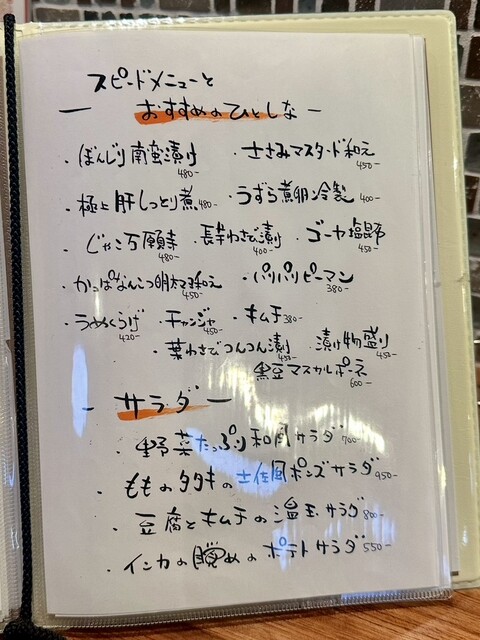 スピードメニューと
— おすすめのひとしな —
・ぼんじり南蛮漬け 480-　・ささみマスタード和え 450-
・極上肝しっとり煮 480-　・うずら煮卵冷製 400-
・じゃこ万願寺 480-　・長芋わさび漬け 400-　・ゴーヤ塩昆布 450-
・かっぱなんこつ明太マヨ和え 450-　・パリパリピーマン 380-
・うめくらげ 420-　・チャンジャ 450-　・キムチ 380-
・葉わさびつんつん漬け 450-　・漬け物盛り 450-
黒豆マスカルポーネ 600-
— サラダ —
・野菜たっぷり和風サラダ 700-
・もものタタキの土佐風ポンズサラダ 950-
・豆腐とキムチの温玉サラダ 800-
・インカの目覚めのポテトサラダ 550-